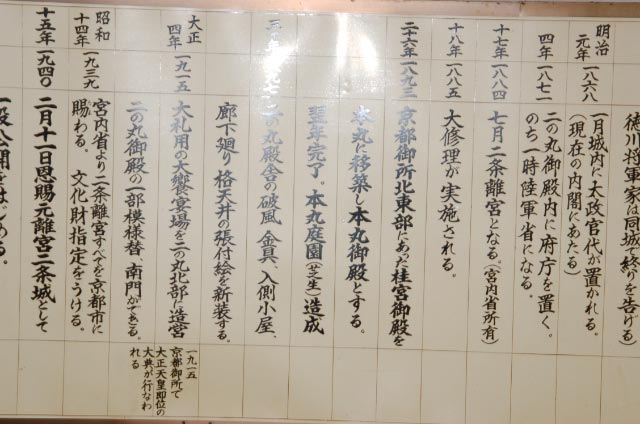 徳川将軍家は同城で終りを告げる)
明治
元年 一八六八
一月城内に太政官代が置かれる。
(現在の内閣にあたる)
四年 一八七一
二の丸御殿内に府庁を置く。
のち一時陸軍省になる。
十七年 一八八四
七月二条離宮となる、(宮内省所有)
十八年 一八八五
大修理が実施される。
二十六年 一八九三
京都御所北東部にあった桂宮御殿を
本丸に移築し本丸御殿とする。
翌年完了。本丸庭園(芝生)造成
二の丸殿舎の破風、金具、入側小屋、
廊下廻り、格天井の張付絵を新装する。
大正
四年 一九一五
大礼用の大饗宴場を二の丸北部に造営
二の丸御殿の一部模様替、南門ができる。
一九一五
京都御所で
大正天皇即位の
大典が行なわ
れる
昭和
十四年 一九三九
宮内省より二条離宮すべてを京都市に
賜わる。 文化財指定をうける。
十五年 一九四〇
二月十一日恩賜元離宮二条城として
一般公開をはじめる。